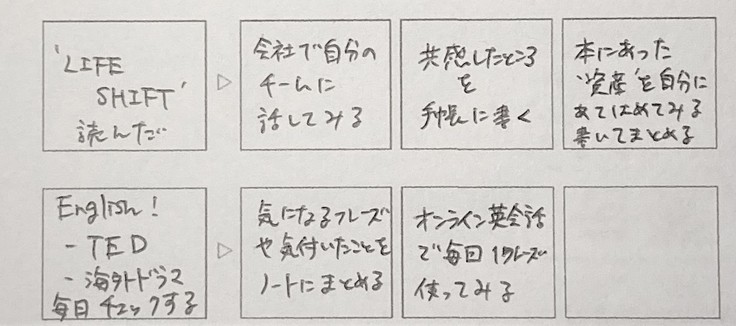 'LIFE
SHIFT'
読んだ
会社で自分の
チームに
話してみる
共感したところ
を
手帳に書く
本にあった
"資産"を自分に
あてはめてみる
書いてまとめる
English!
- TED
- 海外ドラマ
毎日チェックする
気になるフレーズ
や気付いたことを
ノートにまとめる
オンライン英会話
で毎回1フレーズ
使ってみる